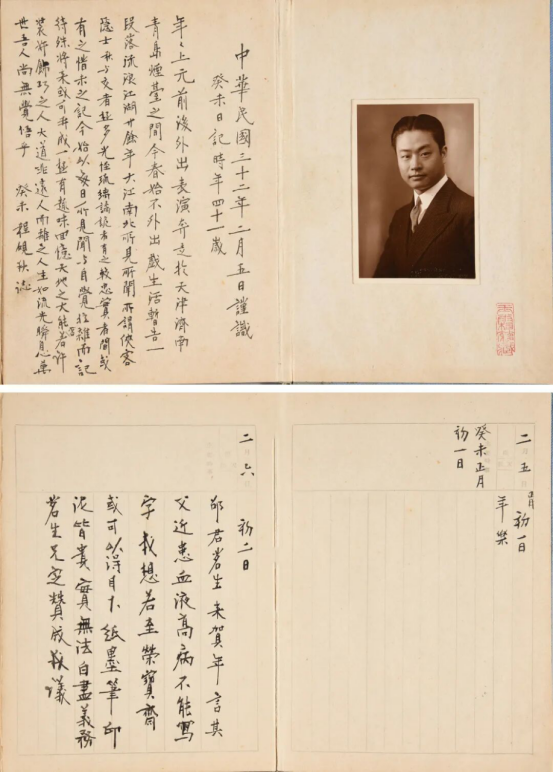 中華民國三十二年二月五日謹識
癸未日記時年四十一歲
年々上元前後外出表演奔走於天津濟南
青島煙臺之間今春始不外出戲生活暫告一
段落流浪江湖廿餘年大江南北所見所聞所謂俠客
隱士 与交者甚多光怪 論談者有之較忠實者間或
有之惜未之記今始以每日所見聞与自覺 雜而記
待 將來或可 成一些有趣味回憶天地之大能者許
裝術飾巧之人大道非遠人而離之人生如流光瞬息萬
世吾人尚無覺悟乎 癸未 程硯秋誌
二 五 正月初一日
年樂
癸未正月
初一日
二 六 初二日
邵君茗生來賀年言其
父近患血液高病不能寫
字我想若至榮寶齋
或可以得月 紙墨筆印
泥皆貴實無法自盡義務
茗生兄定贊成我議